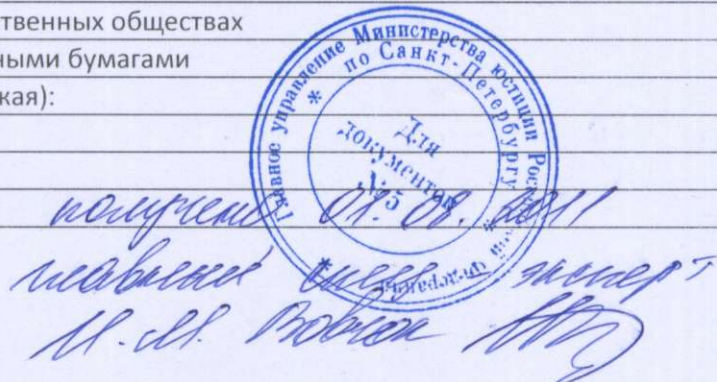 твенных обществах
ными бумагами
кая):
Главное управление Министерства юстиции Российской Федерации
по Санкт-Петербургу
Для
документов
№5
получено 01.09.2011
главный спец. эксперт